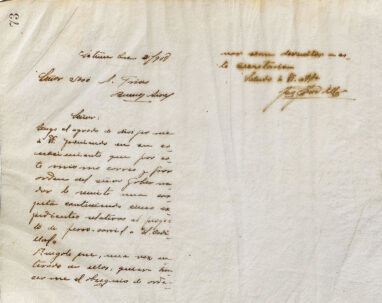 73
Enero 2/908
Señor José A. Frias
Buenos Aires
Señor:
Tengo el agrado de dirigirme
á V. poniendo en su co-
nocimiento que por es-
te mismo correo y por
orden del señor Gober-
nador le remito una car-
peta conteniendo cinco ex-
pedientes relativos al proyec-
to de ferro-carril á
Ruégole que, una vez en-
terado de ellos, quiera ha-
cerme el obsequio de orde-
nar sean devueltos a es-
ta secretaría
Saludo á V. atte